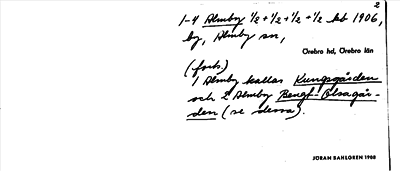 2
1-4 Almby 1/2 + 1/2 + 1/2 + 1/2 hb 1906,
by, Almby sn,
Örebro hd, Örebro län
(forts.)
1 Almby kallas Kungsgården
och 2 Almby Bengt-Olsagår-
den (se dessa).
JÖRAN SAHLGREN 1968